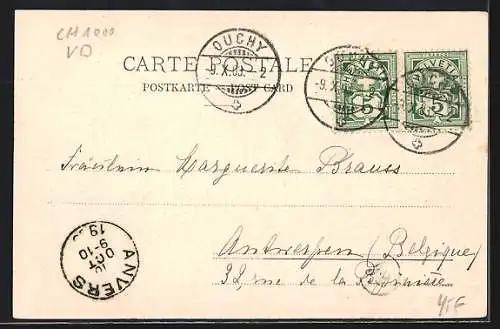 CH 1000
VD
OUCHY
9.X.03. - 2
CARTE POSTALE
POSTKARTE - POST CARD
HELVETIA
5
5
Fräulein Marguerite Brauss
Antwerpen (Belgique)
32, rue de la Pépinière
ANVERS
9-10
OCT
19